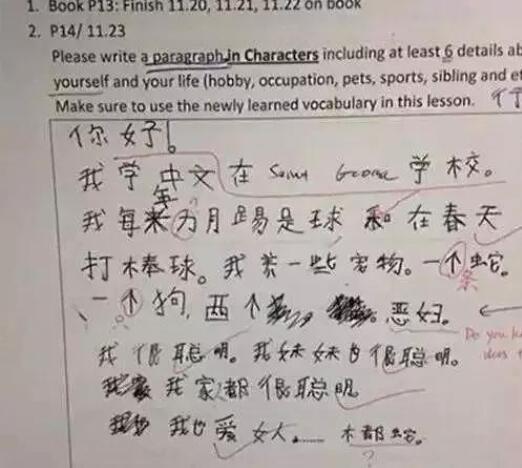 1. Book P13: Finish 11.20, 11.21, 11.22 on book
2. P14/ 11.23
Please write a paragraph in Characters including at least 6 details ab
yourself and your life (hobby, occupation, pets, sports, sibling and et
Make sure to use the newly learned vocabulary in this lesson.
你好!
我学中文在 Saint George 学校。
年
我每来九月踢足球和在春天
打棒球。我养一些宠物。一个蛇。
条
一个狗, 西个 恶妇。
Do you k
does t
我很聪明。我妹妹也很聪明。
我家都很聪明
我也爱女人…… 木都蛇。
?